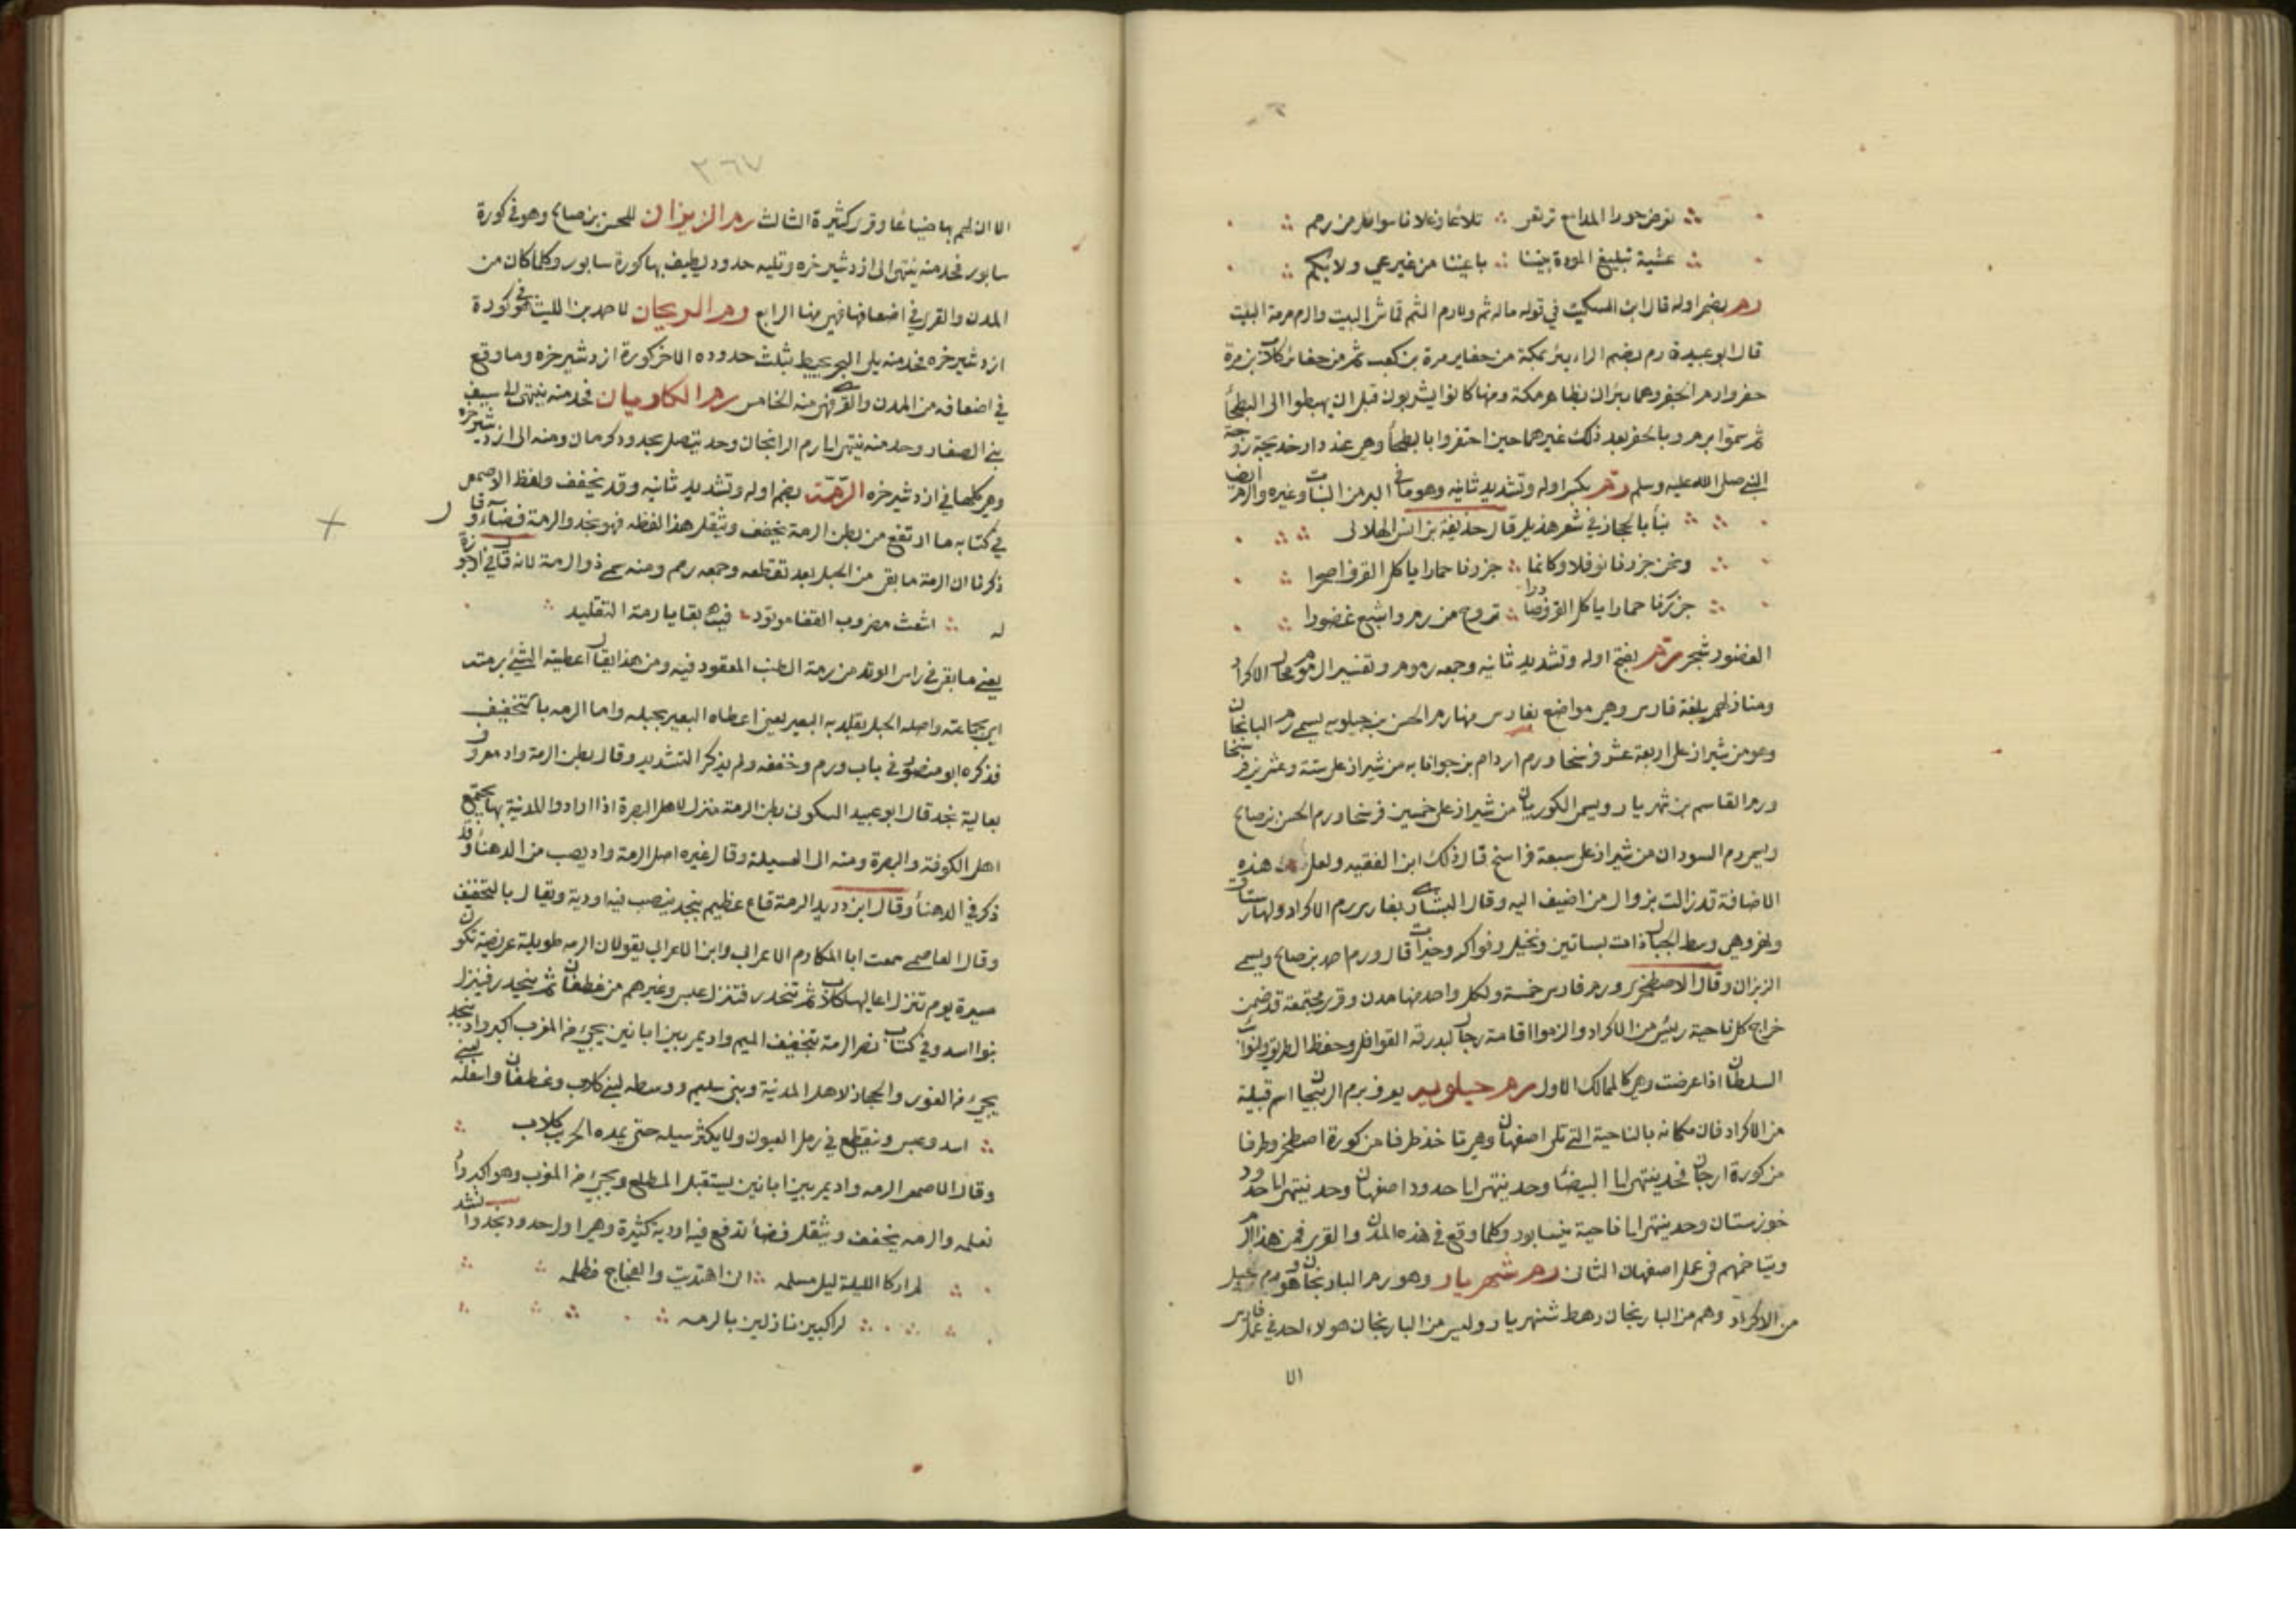 عشية تبليغ المودة بيننا باعيننا من غير عي ولا بكم
رم بضم اوله قال ابن السكيت في قوله ماله ثم ولا رم الثم قماش البيت والرم مرمة البيت
قال ابو عبيدة رم بضم الراء بئر بمكة من حفاير مرة بن كعب ثم من حفائر كلاب بن مرة
حفر وا رم والحفر وهما بئران بظاهر مكة ومنها كانوا يشربون قبل ان يهبطوا الى البطحأ
ثم سموا برم وبالحفر بعد ذلك غيرهما حين احتفروا بالبطحأ وهي عند دار خديجة زوجة
النبي صلى الله عليه وسلم رم بكسر اوله وتشديد ثانيه وهو ما في البر من النبات وغيره والرم ايضا
بنأ بالحجاز في شعر هذيل قال حذيفة بن انس الهلالى
ونحن جزرنا نوفلا وكانما جزرنا حمارا ياكل القرف اصحرا
جزرنا حمارا ياكل القرف صادرا تروح من رم واشبع غضورا
الغضور شجر رم بفتح اوله وتشديد ثانيه وجمعه رموم وتفسير الرموم محال الاكراد
ومنازلهم بلغة فارس وهي مواضع بفارس منها رم الحسن بن جيلويه يسمى رم البانجان
وهو من شيراز على اربعة عشر فرسخا ورم اردام بن جوانابه من شيراز على ستة وعشرين فرسخا
ورم القاسم بن شهريار ويسمى الكوريان من شيراز على خمسين فرسخا ورم الحسن بن صالح
ويسمى رم السوران من شيراز على سبعة فراسخ قال ذلك ابن الفقيه ولعل هذه
الاضافة قد زالت بزوال من اضيف اليه وقال البشاري بفارس رم الاكراد ولها رستاق
ونهر وهي وسط الجبال ذات بساتين ونخيل وفواكه وخيرات قال ورم احمد بن صالح ويسمى
الزيزان وقال الاصطخرى ورم فارس خمسة ولكل واحد منها مدن وقرى مجتمعة قد ضمن
خراج كل ناحية رئيس من الاكراد والزموا اقامة رجال لبدرقة القوافل وحفظ الطريق ولنوائب
السلطان اذا عرضت وهي كالممالك الاول رم جيلويه يعرف برم الزنيجان اسم قبيلة
من الاكراد فان مكانه بالناحية التي تلى اصفهان وهي تاخذ طرفا من كورة اصطخر وطرفا
من كورة ارجان فحد ينتهى الى البيضأ وحد ينتهى الى حدود اصفهان وحد ينتهى الى حدود
خوزستان وحد ينتهى الى ناحية نيسابور وكلما وقع في هذه المدن والقرى فمن هذا الرم
ويتاخمهم في عمل اصفهان الثانى رم شهريار وهو رم البارنجان وهو رم جيل
من الاكراد وهم من البارنجان رهط شهريار وليس من البارنجان هولاء احد في عمل فارس
الا
٣٦٧
الا ان لهم بها ضياعا وقرى كثيرة الثالث رم الزيزان للحسن بن صالح وهو في كورة
سابور فحد منه ينتهى الى ازدشير خره وتليه حدود يطيف بها كورة سابور وكلما كان من
المدن والقرى في اضعافها فهي منها الرابع رم الريحان لاحمد بن الليث وهو في كورة
ازدشير خره فحد منه يلى البحر يحيط بثلث حدوده الاخر كورة ازدشير خره وما وقع
في اضعافه من المدن والقرى فهي منه الخامس رم الكاريان فحد منه ينتهى الى سيف
بني الصفار وحد منه ينتهى الى رم الرانجان وحد يتصل بحدود كرمان ومنه الى ازدشير خره
وهي كلها في ازدشير خره الرمة بضم اوله وتشديد ثانيه وقد يخفف ولفظ الاصمعى
في كتابه ما ارتفع من بطن الرمة يخفف ويثقل هذا لفظه فهو نجد والرمة فضاء وقد
ذكرنا ان الرمة ما بقى من الحبل بعد تقطعه وجمعه رم ومنه سمى ذو الرمة لانه قال في ارجوزة
له اشعث مضروب القفا موتود فيه بقايا رمة التقليد
يعنى ما بقى في راس الوتد من رمة الطنب المعقود فيه ومن هذا يقال اعطيته الشئ برمته
اي بجماعته واصله الحبل يقلد به البعير يعنى اعطاه البعير بحبله واما الرمه بالتخفيف
فذكره ابو منصور في باب ورم وخففه ولم يذكر التشديد وقال بطن الرمة واد معروف
بعالية نجد قال ابو عبيد السكونى بطن الرمة منزل لاهل البصرة اذا ارادوا المدينة بها يجتمع
اهل الكوفة والبصرة ومنه الى العسيلة وقال غيره اصل الرمة واد يصب من الدهنأ وقد
ذكر في الدهنأ وقال ابن دريد الرمة قاع عظيم بنجد ينصب فيه اودية ويقال بالتخفيف
وقال العاصمى سمعت ابا المكارم الاعرابي وابن الاعرابي يقولان الرمه طويلة عريضة تكون
مسيرة يوم تنزل اعاليها كلاب ثم تنحدر فتنزل عبس وغيرهم من غطفان ثم ينحدر فينزل
بنوا اسد وفي كتاب نصر الرمة بتخفيف الميم واد يمر بين ابانين يجئ من المغرب اكبر واد بنجد
يجئ من الغور والحجاز لاهل المدينة وبنى سليم ووسطه لبنى كلاب وغطفان واسفله لبنى
اسد وعبس وينقطع في رمل العيون ولا يكثر سيله حتى يمده الجريب كلاب
وقال الاصمعى الرمه واد يمر بين ابانين يستقبل المطلع ويجئ من المغرب وهو اكبر واد
نعلمه والرمه يخفف ويثقل فضأ تدفع فيه اودية كثيرة وهي اول حدود نجد وانشد
لم ار كالليلة ليل مسلمه انى اهتديت والفجاج مظلمه
لراكبين نازلين بالرمه